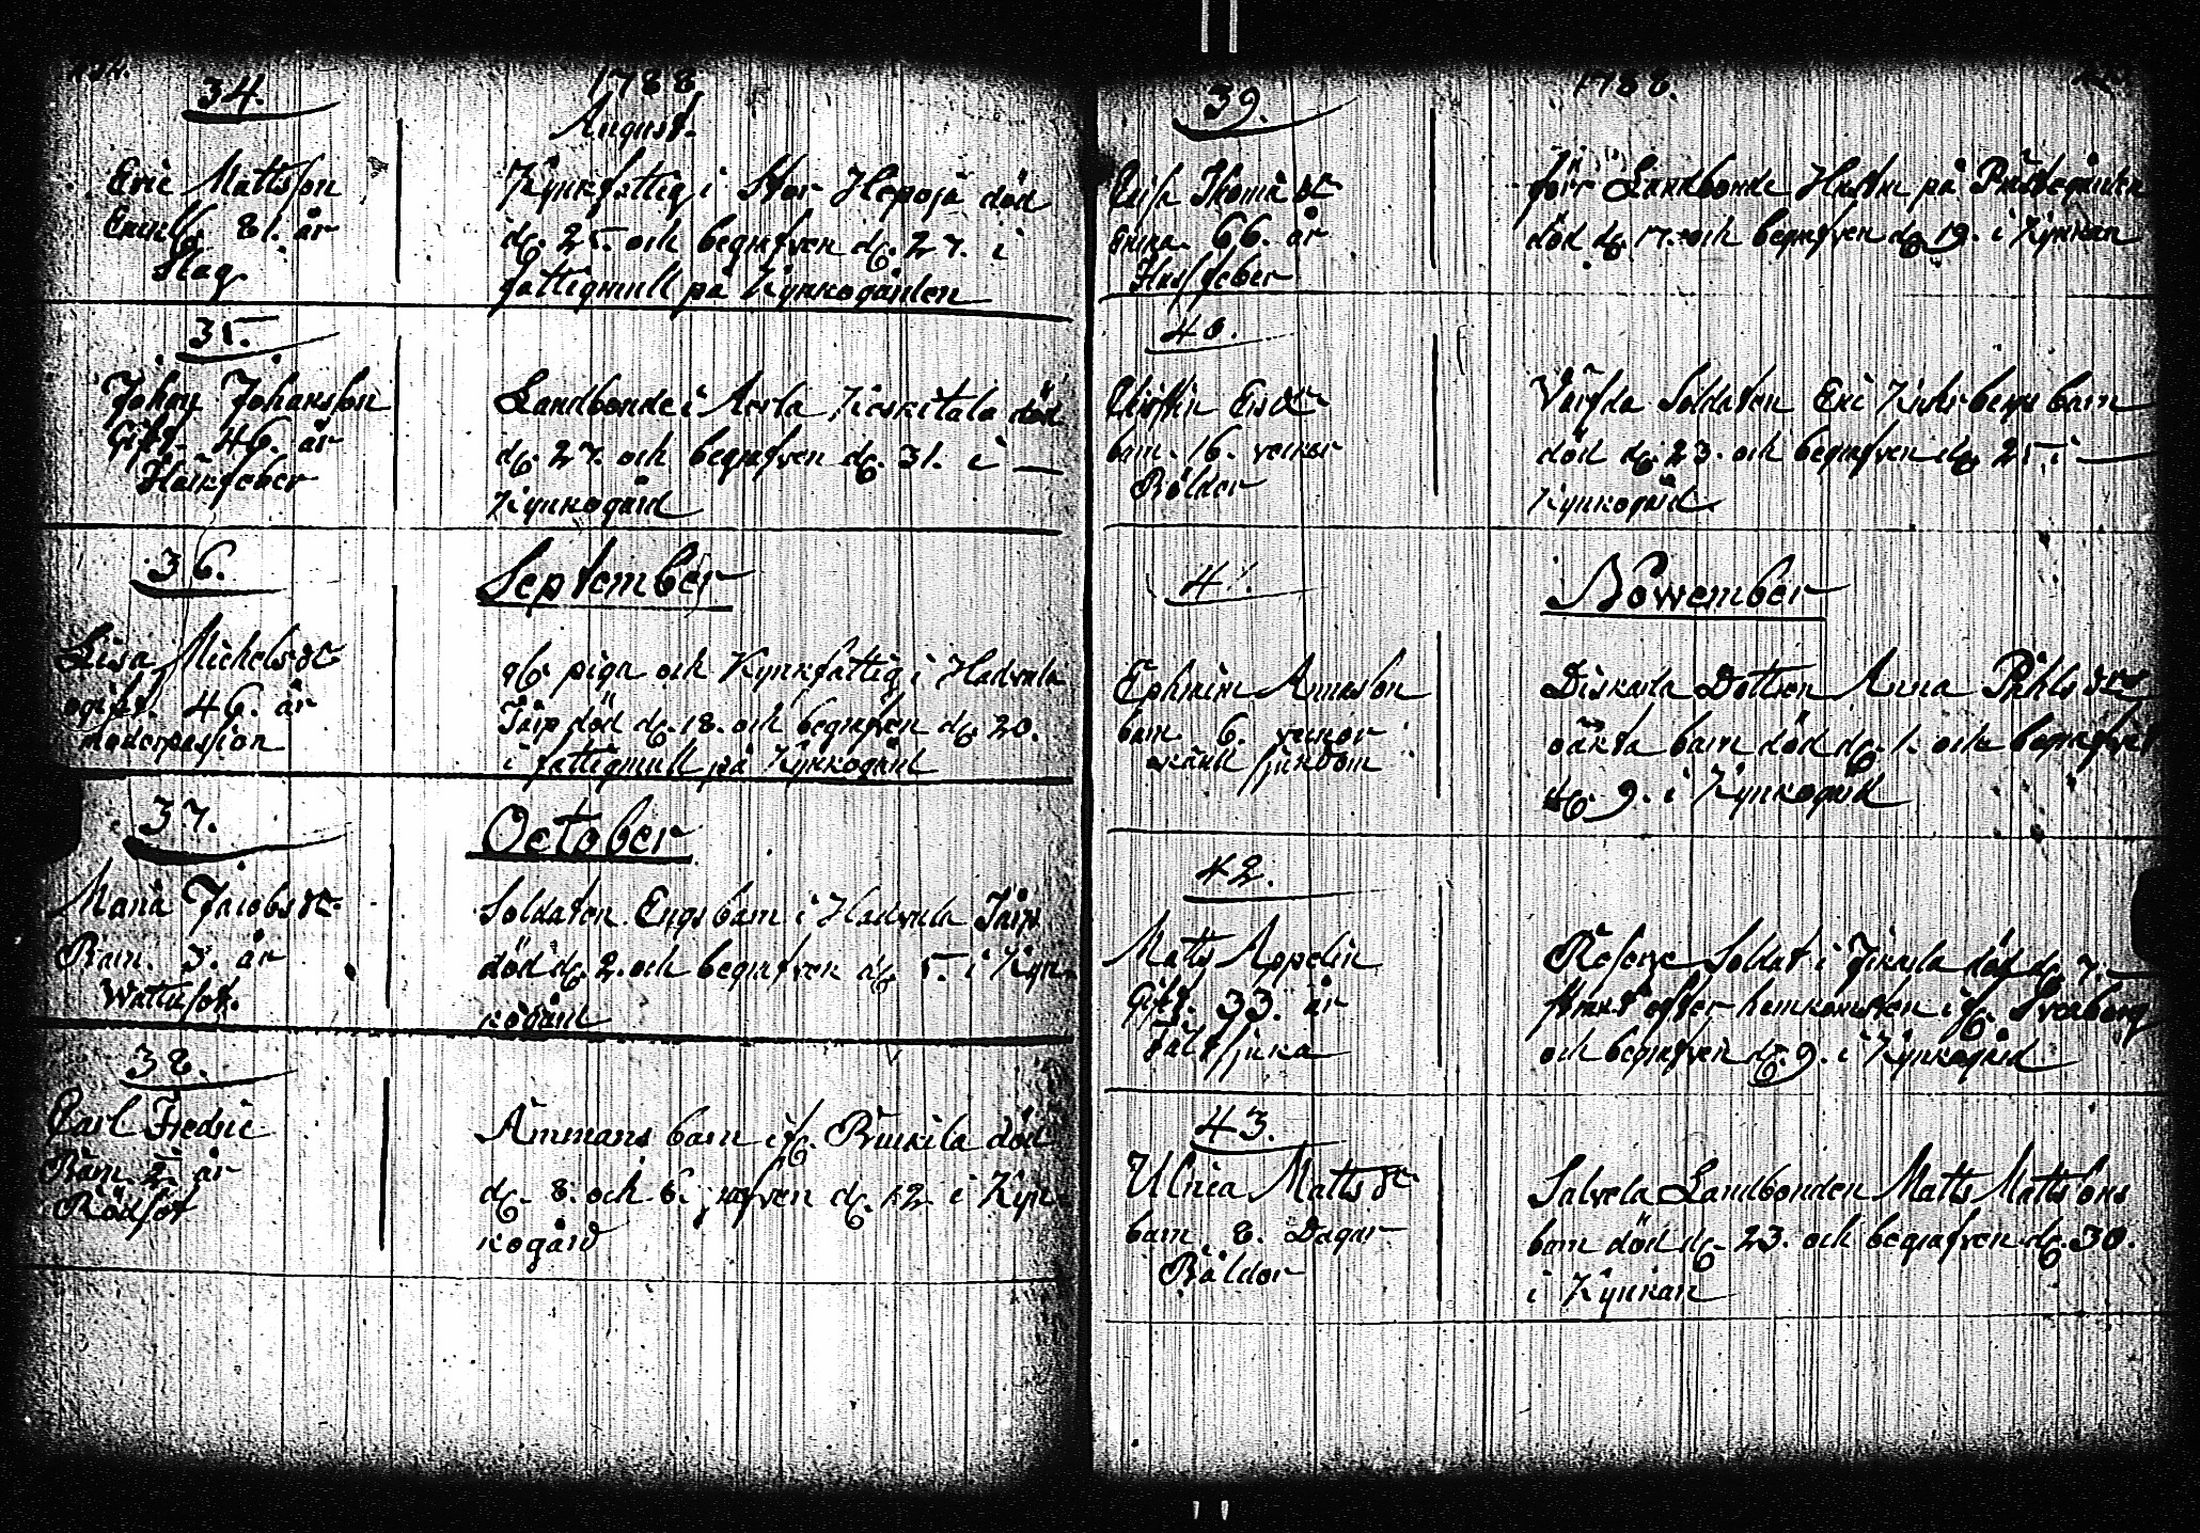 34.
1788
August.
Eric Mattsson
Enkl. 81. år
Slag
Kyrkfattig i Stor Hepojä död
dg. 25. och begrafven dg. 27. i
fattigmull på Kyrkogården
35.
Johan Johansson
Gift. 46. år
Landbonde i Kierkitala död
dg. 27. och begrafven dg. 31. i
Kyrkogård
36.
September
Lisa Michelsdr
ogift. 46. år
moderpassion
piga och Kyrkfattig i Hadvala
Järp död dg. 18. och begrafven dg. 20.
i fattigmull på Kyrkogård
37.
October
Maria Jacobsdr
Barn. 3. år
Wattusot.
Soldaten Engs barn i Hadvala Järp
död dg. 2. och begrafven dg. 5. i Kyr-
kogård
38.
Carl Fredric
Barn. 2. år
Rödsot
Ammans barn ifr. Runkila död
dg. 8. och begrafven dg. 12 i Kyr-
kogård
39.
1788.
Thomædr
Enka. 66. år
feber
förr Landbonde Hustru på Prästegården
död dg. 17. och begrafven dg. 19. i Kyrkan
40.
Christin Ersdr
barn. 16. veckor
Bölder
Värfda Soldaten Eric barn
död dg. 23. och begrafven dg. 25. i
Kyrkogård
41.
November
Ephraim Annasson
barn 6. veckor
okänd sjukdom
Diskarla Dottren Anna Påhlsdrs
oäkta barn död dg. 1. och begrafvet
dg. 9. i Kyrkogård
42.
Matts Appelin
Gift. 33. år
Fältsjuka
Reserve Soldat i död dg. 7.
strax efter hemkomsten ifr. Sveaborg
och begrafven dg. 9. i Kyrkogård
43.
Ulrica Mattsdr
barn 8. Dagar
Bölder
Salvela Landbonden Matts Mattsons
barn död dg. 23. och begrafven dg. 30.
i Kyrkan